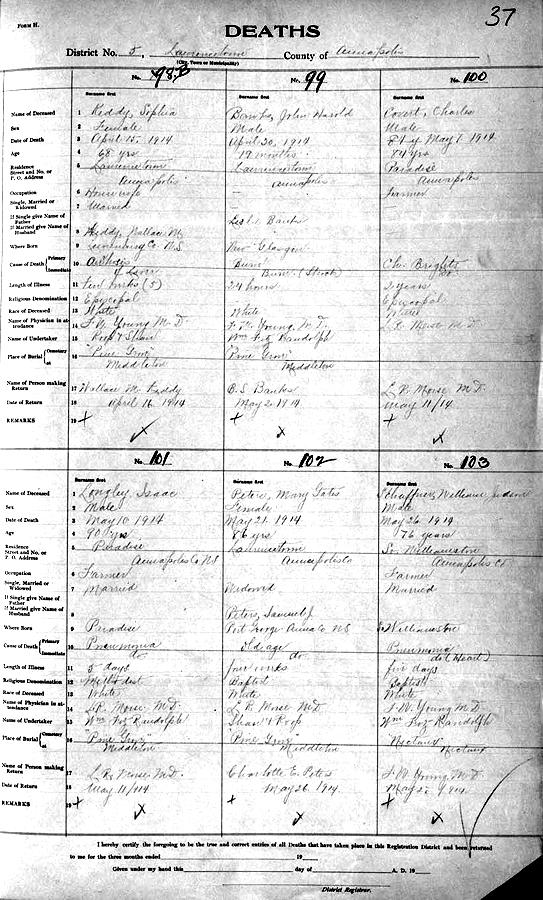 FORM H.
37
DEATHS
District No. 5, Lawrencetown County of Annapolis
(City, Town or Municipality)
No. 98, B No. 99 No. 100
Surname first Surname first Surname first
Name of Deceased 1 Reddy, Sophia Banks, John Harold Covert, Charles
Sex 2 Female Male Male
Date of Death 3 April 15, 1914 April 30, 1914 May 1 1914
Age 4 68 yrs 19 months 84 yrs
Residence Street and No. or P. O. Address 5 Lawrencetown Annapolis Lawrencetown Annapolis Paradise Annapolis
Occupation 6 Housewife — Farmer
Single, Married or Widowed 7 Married — —
If Single give Name of Father
If Married give Name of Husband 8 Reddy, Wallace M. Leslie Banks
Where Born 9 Lunenburg Co N.S New Glasgow
Cause of Death Primary Immediate 10 of Liver Burn Burn (Shock) Ch. Brights do
Length of Illness 11 (5) 24 hours 2 years
Religious Denomination 12 Episcopal Episcopal
Race of Deceased 13 White White White
Name of Physician in attendance 14 F. W. Young M. D. F. W. Young, M. D. L. R. Morse M. D.
Name of Undertaker 15 Roop & Shaw Wm Fitz Randolph
Place of Burial Cemetery at 16 Pine Grove Middleton Pine Grove Middleton
Name of Person making Return 17 Wallace M. Reddy B. S. Banks L. R. Morse M.D.
Date of Return 18 April 16, 1914 May 2, 1914 May 11/14
REMARKS 19 + + +
No. 101 No. 102 No. 103
Surname first Surname first Surname first
Name of Deceased 1 Longley, Isaac Peters, Mary Gates Schaffner, William Judson
Sex 2 Male Female Male
Date of Death 3 May 10 1914 May 21, 1914 May 26 1914
Age 4 90 yrs 86 yrs 76 years
Residence Street and No. or P. O. Address 5 Paradise Annapolis Co NS Lawrencetown Annapolis Co So. Williamston Annapolis Co
Occupation 6 Farmer Farmer
Single, Married or Widowed 7 Married Widowed Married
If Single give Name of Father
If Married give Name of Husband 8 Peters, Samuel J
Where Born 9 Paradise Port George Anna Co NS So Williamston
Cause of Death Primary Immediate 10 Pneumonia do Old age do Pneumonia do (Heart)
Length of Illness 11 5 days four weeks five days
Religious Denomination 12 Methodist Baptist Baptist
Race of Deceased 13 White White White
Name of Physician in attendance 14 L. R. Morse M.D. L. R. Morse M.D. F. W. Young M.D.
Name of Undertaker 15 Wm Fitz Randolph Shaw & Roop Wm Fitz Randolph
Place of Burial Cemetery at 16 "Pine Grove" Middleton "Pine Grove" Middleton "Nictaux" Nictaux
Name of Person making Return 17 L. R. Morse M.D. Charlotte E. Peters F. W. Young M.D.
Date of Return 18 May 11/14 May 26 1914 May 1914
REMARKS 19 + + +
I hereby certify the foregoing to be the true and correct entries of all Deaths that have taken place in this Registration District and been returned
to me for the three months ended 19
Given under my hand this day of A. D. 19
District Registrar.